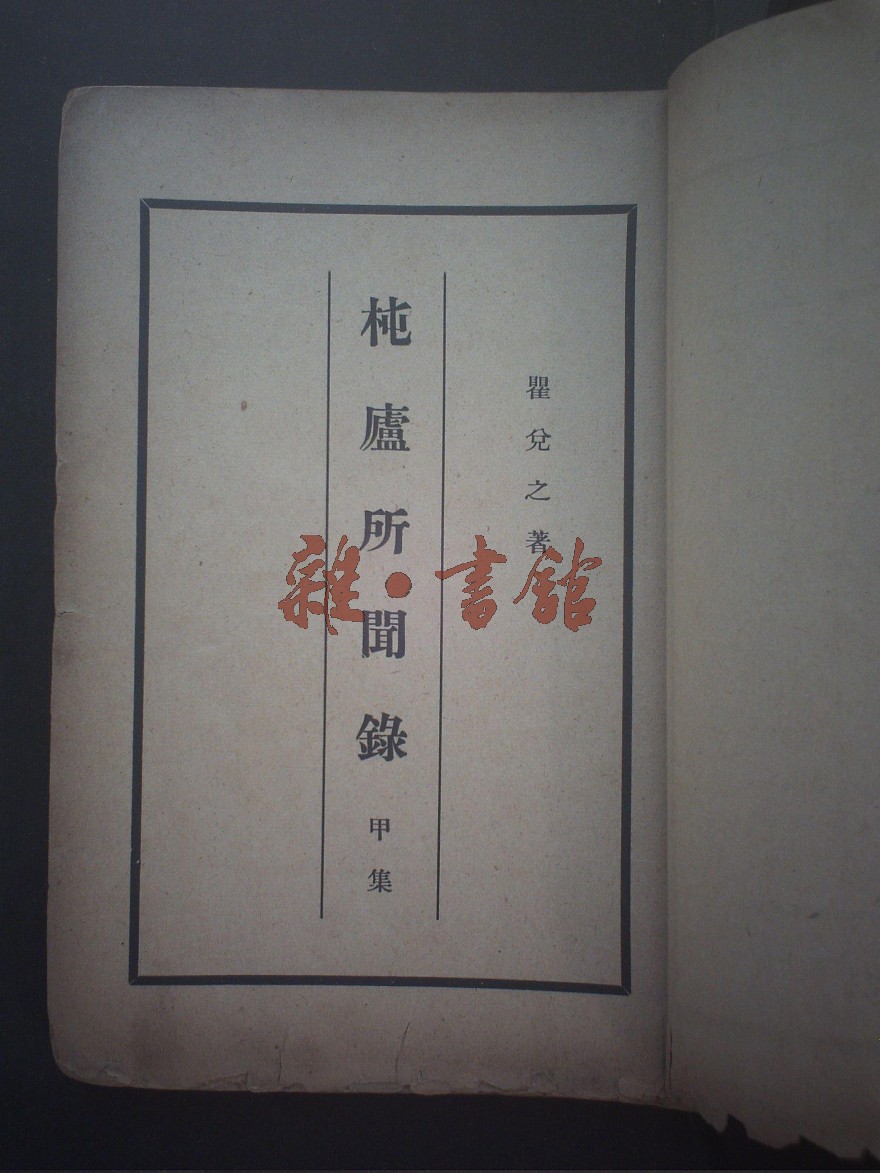 瞿兌之著
杶廬所聞錄 甲集
雜·書館